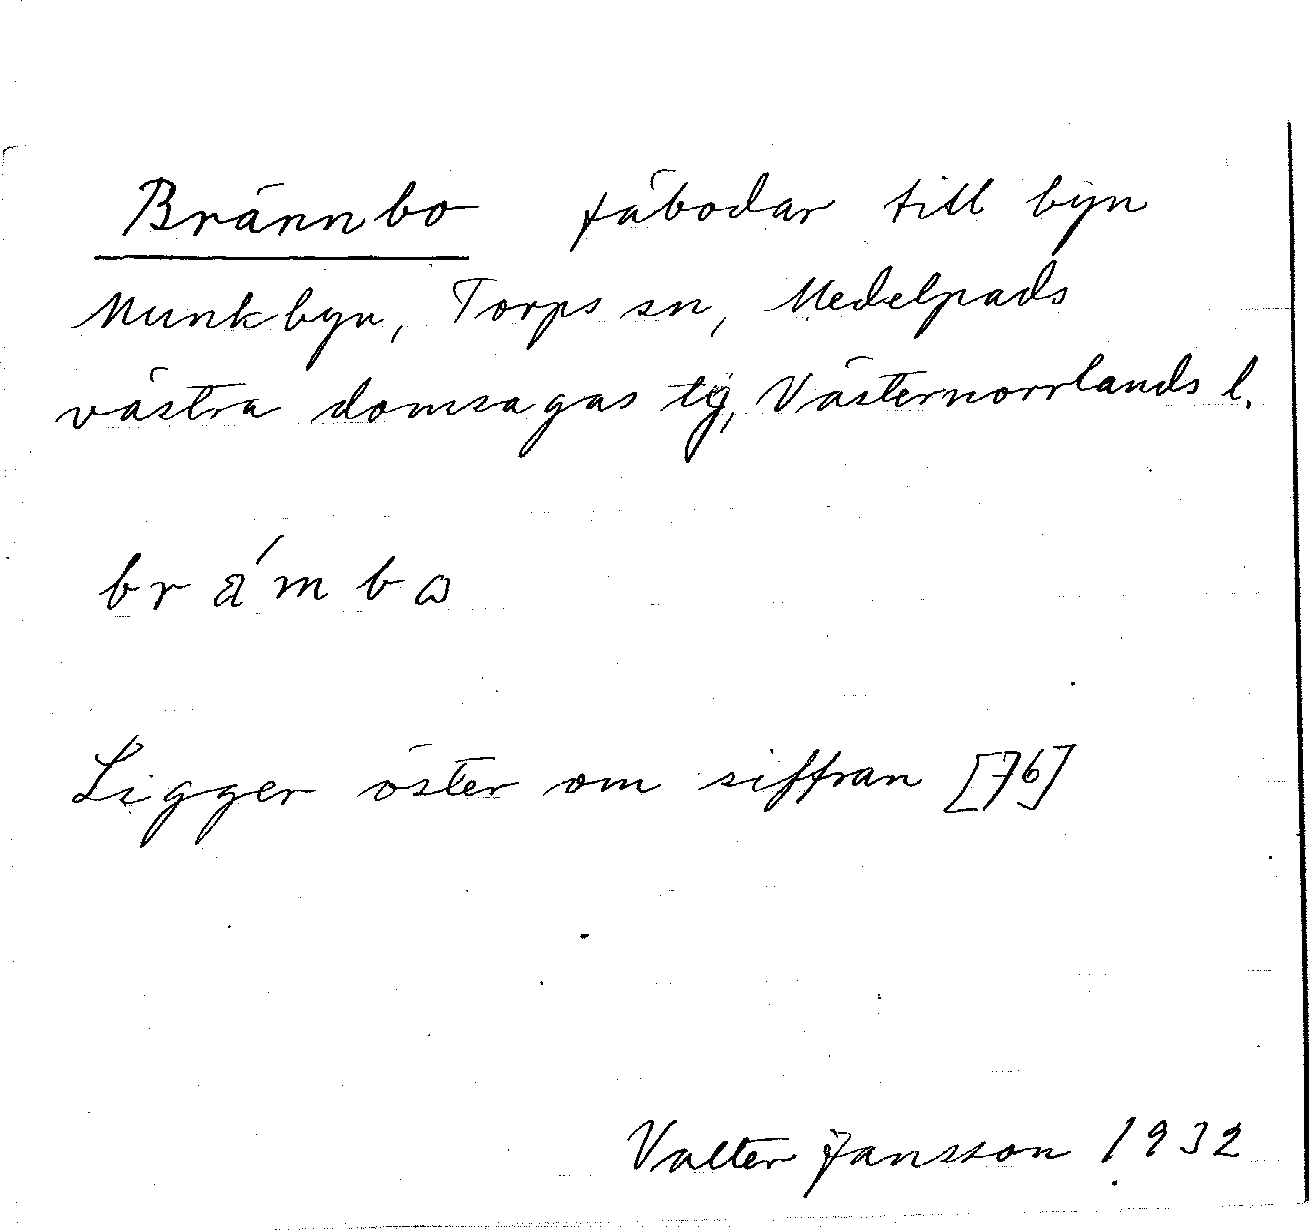 Brännbo fäbodar till byn
Munkbyn, Torps sn, Medelpads
västra domsagas tg, Västernorrlands l.
brämba
Ligger öster om siffran [76]
Valter Jansson 1932